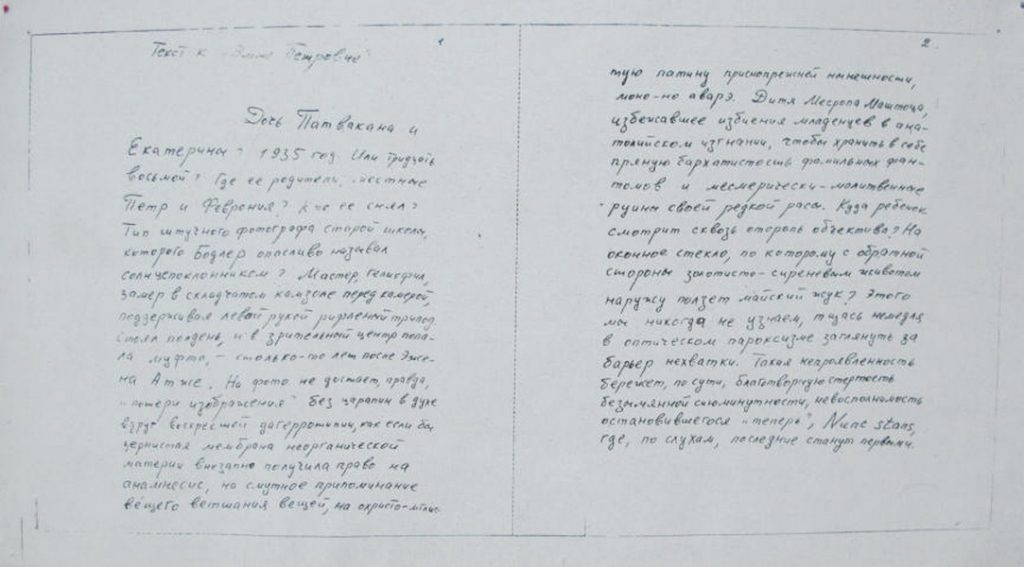 Текст к "Эмме Петровне"
1
Дочь Патвакана и
Екатерины? 1935 год. Или тридцать
восьмой? Где ее родители, местные
Петр и Феврония? Кто ее снял?
Тип штучного фотографа старой школы,
которого Бодлер опасливо называл
солнцепоклонником? Мастер, гелиофил,
замер в складчатом камзоле перед камерой,
поддерживая левой рукой рифленый трипод.
Стоял полдень, и в зрительный центр попа-
ла муфта, – столько-то лет после Эже-
на Атже. На фото не достает, правда,
"потери изображения" без царапин в духе
вдруг воскресшей дагерротипии, как если бы
зернистая мембрана неорганической
материи внезапно получила право на
анамнесис, на смутное припоминание
ве́щего ветшания вещей, на охристо-мглис-
2.
тую патину приснопрежней нынешности,
моно-но аварэ. Дитя Месропа Маштоца,
избежавшее избиения младенцев в ана-
толийском изгнании, чтобы хранить в себе
пряную бархатистость фамильных фан-
томов и месмерически-молитвенные
руины своей редкой расы. Куда ребенок
смотрит сквозь оторопь объектива? На
оконное стекло, по которому с обратной
стороны золотисто-сиреневым животом
наружу ползет майский жук? Этого
мы никогда не узнаем, тщась немедля
в оптическом пароксизме заглянуть за
барьер нехватки. Такая непроявленность
бережет, по сути, благотворную стертость
безымянной сиюминутности, невосполнимость
остановившегося "теперь", Nunc stans,
где, по слухам, последние станут первыми.